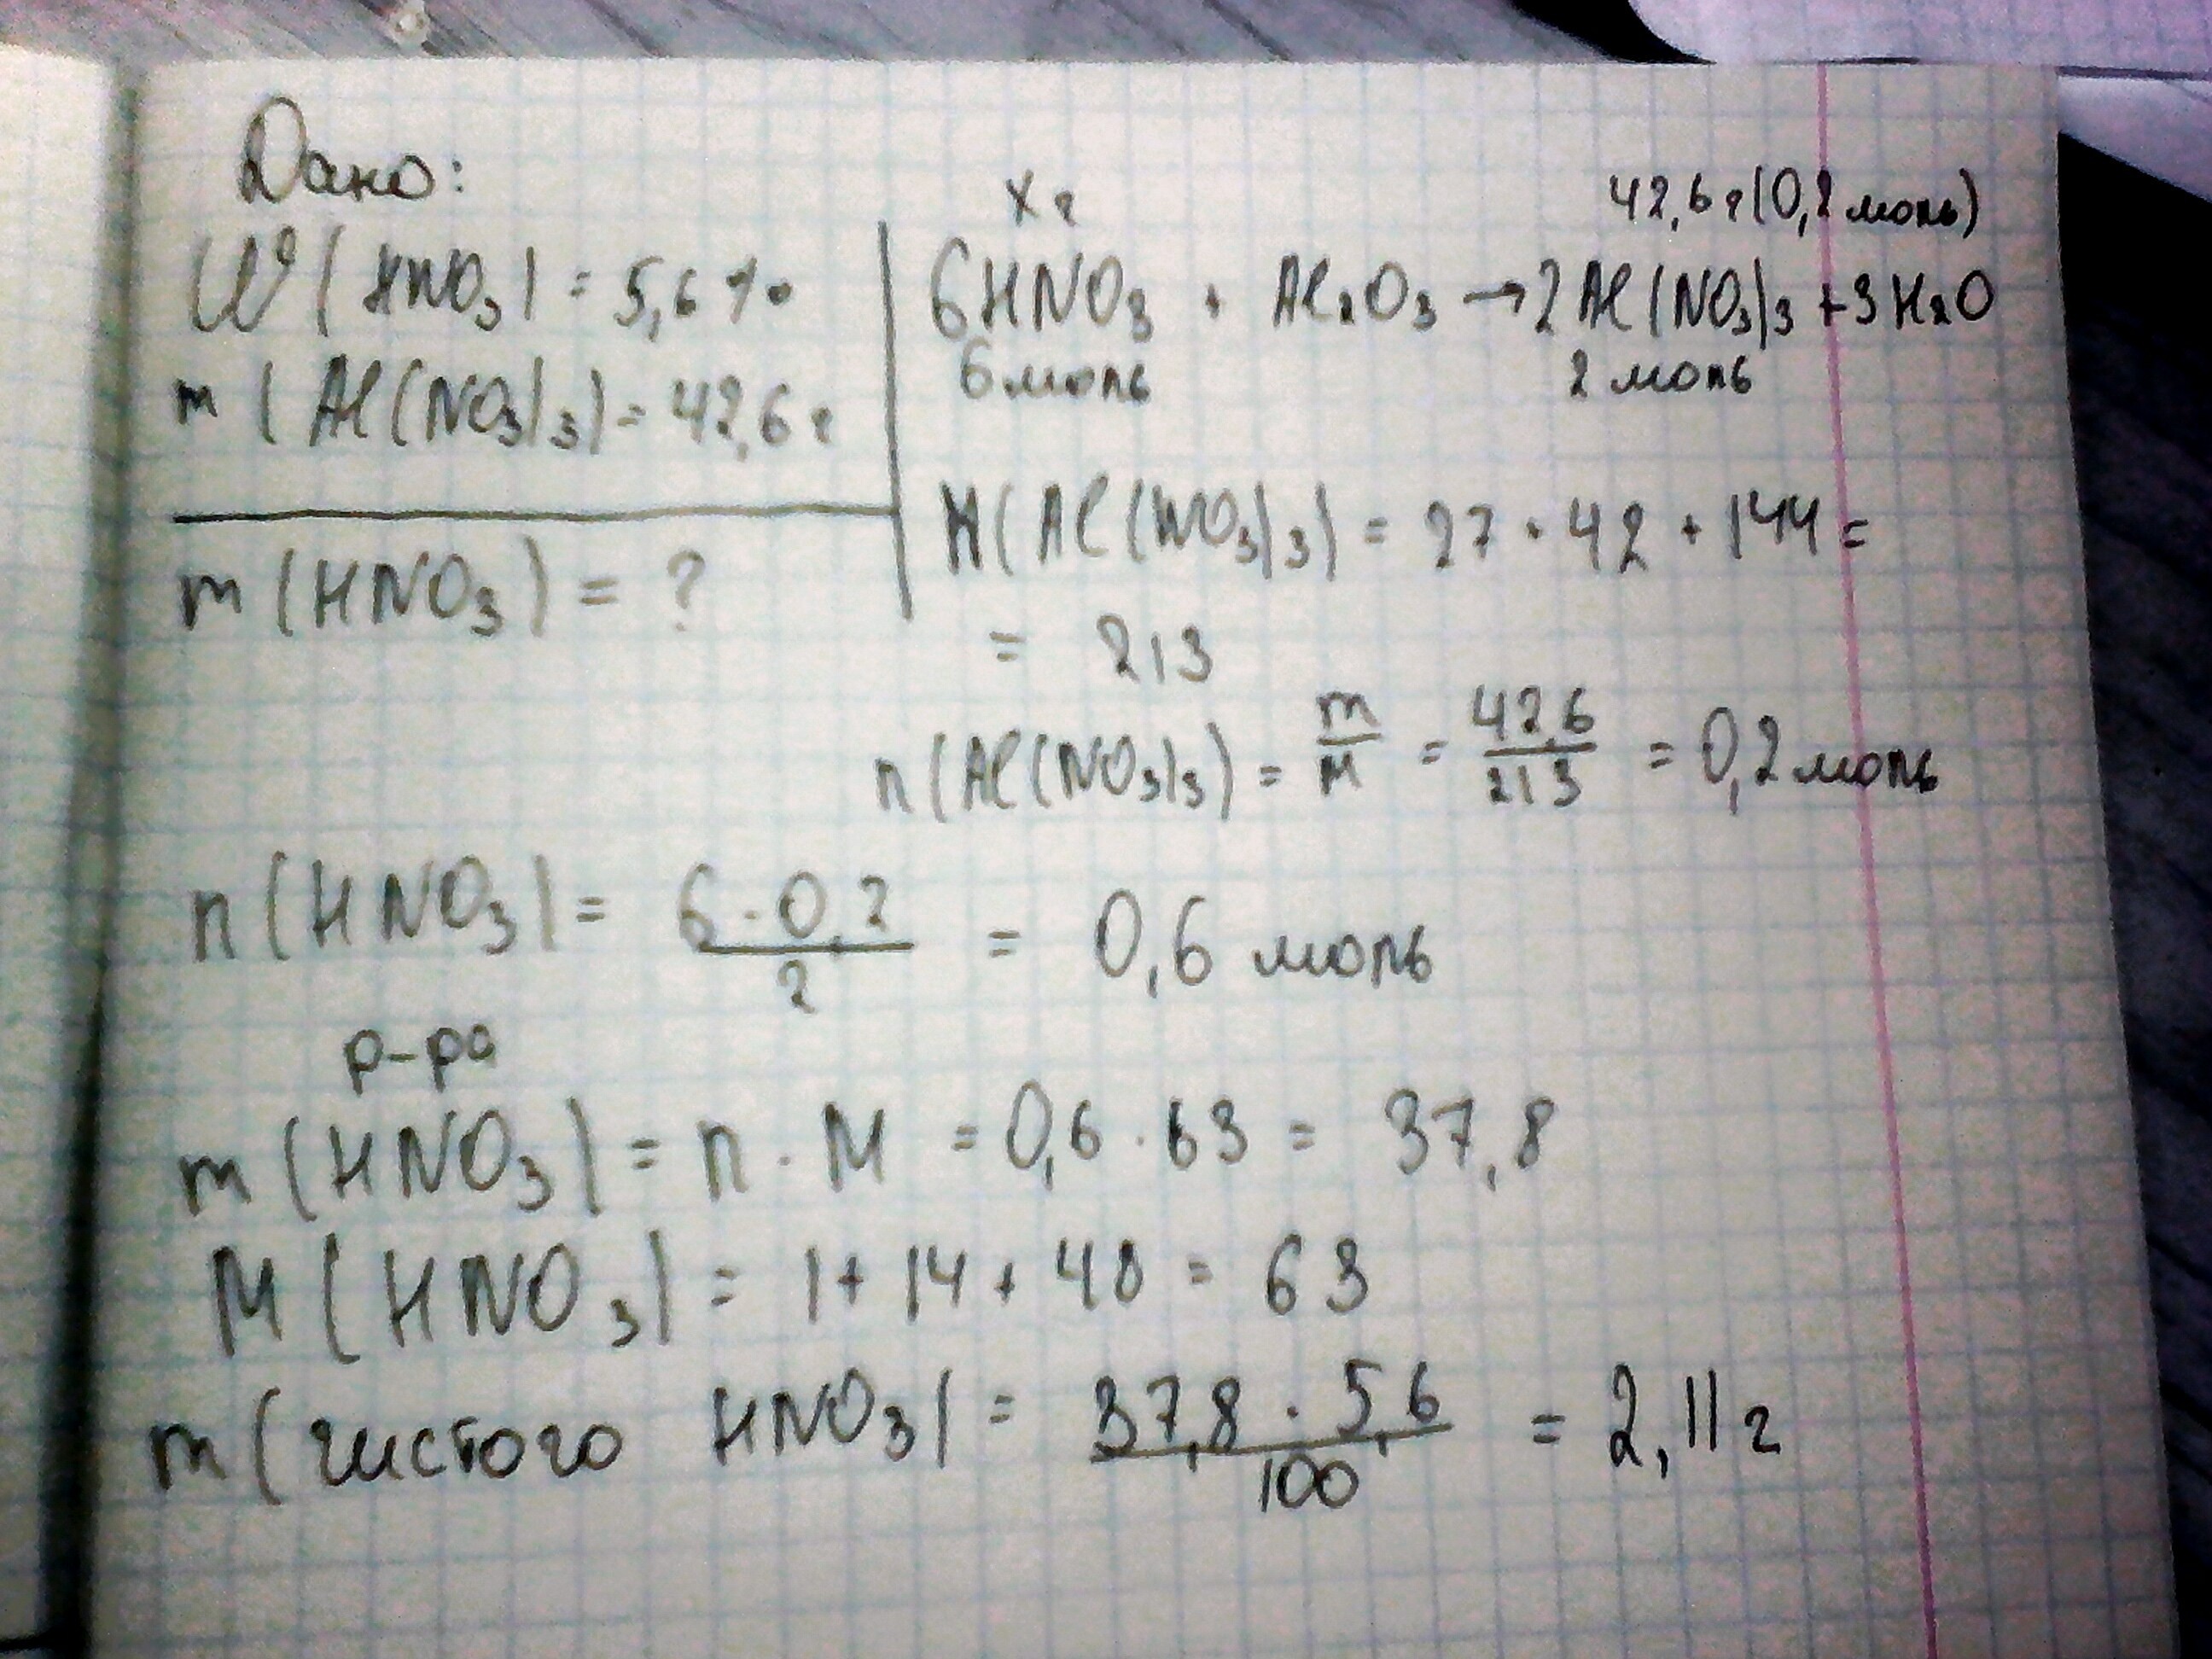 Дано:
W(HNO₃) = 5,6%
m(Al(NO₃)₃) = 42,6г
m(HNO₃) = ?
Xг 42,6г(0,2 моль)
6HNO₃ + Al₂O₃ → 2Al(NO₃)₃ + 3H₂O
6 моль 2 моль
M(Al(NO₃)₃) = 27 + 42 + 144 =
= 213
n(Al(NO₃)₃) = m/M = 42,6/213 = 0,2 моль
n(HNO₃) = 6·0,2/2 = 0,6 моль
р-ра
m(HNO₃) = n · M = 0,6 · 63 = 37,8
M(HNO₃) = 1 + 14 + 48 = 63
m(чистого HNO₃) = 37,8 · 5,6/100 = 2,11г